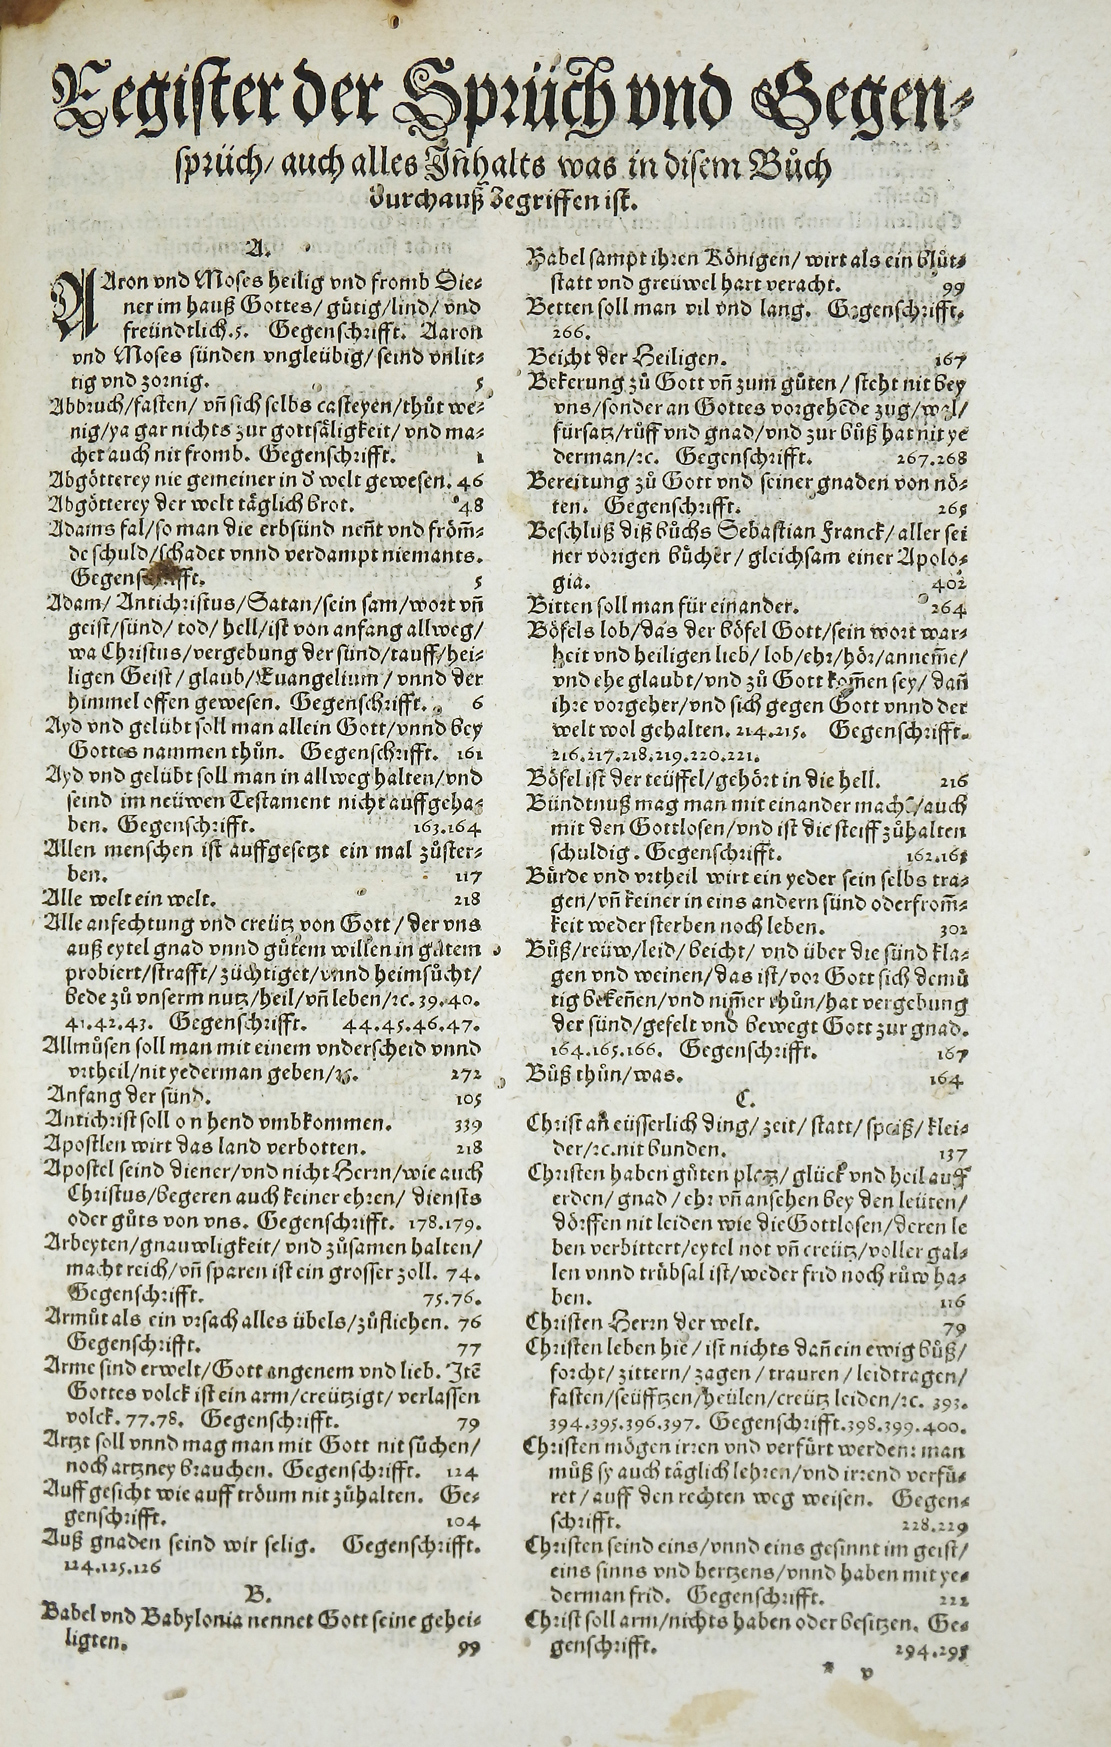 Register der Sprüch vnd Gegen-
sprüch/ auch alles Jñhalts was in disem Bůch
durchauß begriffen ist.
A.
AAron vnd Moses heilig vnd fromb Die-
ner im hauß Gottes/ gůtig/lind/ vnd
freündtlich.5. Gegenschrifft. Aaron
vnd Moses sünden vngleübig/ seind vnlit-
tig vnd zornig. 5
Abbruch/fasten/ vñ sich selbs casteyen/thůt we-
nig/ya gar nichts zur gottsäligkeit/ vnd ma-
chet auch nit fromb. Gegenschrifft. 1
Abgötterey nie gemeiner in d' welt gewesen. 46
Abgötterey der welt täglich brot. 48
Adams fal/so man die erbsünd neñt vnd fröm̃-
de schuld/schadet vnnd verdampt niemants.
Gegenschrifft. 5
Adam/ Antichristus/Satan/sein sam/wort vñ
geist/sünd/ tod/ hell/ist von anfang allweg/
wa Christus/vergebung der sünd/tauff/hei-
ligen Geist/ glaub/Euangelium/ vnnd der
himmel offen gewesen. Gegenschrifft. 6
Ayd vnd gelübt soll man allein Gott/vnnd bey
Gottes nammen thůn. Gegenschrifft. 161
Ayd vnd gelübt soll man in allweg halten/vnd
seind im neüwen Testament nicht auffgeha-
ben. Gegenschrifft. 163.164
Allen menschen ist auffgesetzt ein mal zůster-
ben. 117
Alle welt ein welt. 218
Alle anfechtung vnd creütz von Gott/ der vns
auß eytel gnad vnnd gůtem willen in gůtem
probiert/strafft/ züchtiget/vnnd heimsůcht/
bede zů vnserm nutz/heil/vñ leben/ꝛc. 39.40.
41.42.43. Gegenschrifft. 44.45.46.47.
Allmůsen soll man mit einem vnderscheid vnnd
vrtheil/nit yederman geben/ꝛc. 272
Anfang der sünd. 105
Antichrist soll on hend vmbkommen. 339
Apostlen wirt das land verbotten. 218
Apostel seind diener/vnd nicht Herrn/wie auch
Christus/begeren auch keiner ehren/ diensts
oder gůts von vns. Gegenschrifft. 178.179.
Arbeyten/gnauwligkeit/ vnd zůsamen halten/
macht reich/vñ sparen ist ein grosser zoll. 74.
Gegenschrifft. 75.76.
Armůt als ein vrsach alles übels/zůfliehen. 76
Gegenschrifft. 77
Arme sind erwelt/Gott angenem vnd lieb. Jtē
Gottes volck ist ein arm/creützigt/ verlassen
volck. 77.78. Gegenschrifft. 79
Artzt soll vnnd mag man mit Gott nit sůchen/
noch artzney brauchen. Gegenschrifft. 124
Auff gesicht wie auff tröum nit zůhalten. Ge-
genschrifft. 104
Auß gnaden seind wir selig. Gegenschrifft.
124.125.126
B.
Babel vnd Babylonia nennet Gott seine gehei-
ligten. 99
Babel sampt ihren Königen/ wirt als ein blůt-
statt vnd greüwel hart veracht. 99
Betten soll man vil vnd lang. Gegenschrifft.
266.
Beicht der Heiligen. 167
Bekerung zů Gott vñ zum gůten/ steht nit bey
vns/sonder an Gottes vorgehēde zug/wal/
fürsatz/rüff vnd gnad/vnd zur bůß hat nit ye
derman/ꝛc. Gegenschrifft. 267.268
Bereitung zů Gott vnd seiner gnaden von nö-
ten. Gegenschrifft. 265
Beschluß diß bůchs Sebastian Franck/aller sei
ner vorigen bůcher/ gleichsam einer Apolo-
gia. 402
Bitten soll man für einander. 264
Böfels lob/das der böfel Gott/sein wort war-
heit vnd heiligen lieb/ lob/ehr/hör/anneme/
vnd ehe glaubt/vnd zů Gott kom̃en sey/ dañ
ihre vorgeher/vnd sich gegen Gott vnnd der
welt wol gehalten. 214.215. Gegenschrifft.
216.217.218.219.220.221.
Böfel ist der teüffel/gehört in die hell. 216
Bündtnuß mag man mit einander machē/auch
mit den Gottlosen/vnd ist die steiff zůhalten
schuldig. Gegenschrifft. 162.163
Bürde vnd vrtheil wirt ein yeder sein selbs tra-
gen/vñ keiner in eins andern sünd oder from̃-
keit weder sterben noch leben. 302
Bůß/reüw/leid/ beicht/ vnd über die sünd kla-
gen vnd weinen/das ist/vor Gott sich demů
tig bekeñen/vnd nim̃er thůn/hat vergebung
der sünd/gefelt vnd bewegt Gott zur gnad.
164.165.166. Gegenschrifft. 167
Bůß thůn/was. 164
C.
Christ añ eüsserlich ding/ zeit/ statt/ speiß/ klei-
der/ꝛc.nit bunden. 137
Christen haben gůten platz/ glück vnd heil auff
erden/ gnad/ ehr vñ ansehen bey den leüten/
dörffen nit leiden wie die Gottlosen/deren le
ben verbittert/eytel not vñ creütz/voller gal-
len vnnd trůbsal ist/weder frid noch růw ha-
ben. 116
Christen Herrn der welt. 79
Christen leben hie/ ist nichts dañ ein ewig bůß/
forcht/ zittern/ zagen/ trauren/ leidtragen/
fasten/seüfftzen/heülen/creütz leiden/ꝛc. 393.
394.395.396.397. Gegenschrifft.398.399.400.
Christen mögen irren vnd verfürt werden: man
můß sy auch täglich lehren/vnd irrend verfü-
ret/ auff den rechten weg weisen. Gegen-
schrifft. 228.229
Christen seind eins/vnnd eins gesinnt im geist/
eins sinns vnd hertzens/vnnd haben mit ye-
derman frid. Gegenschrifft. 222
Christ soll arm/nichts haben oder besitzen. Ge-
genschrifft. 294.295
* v